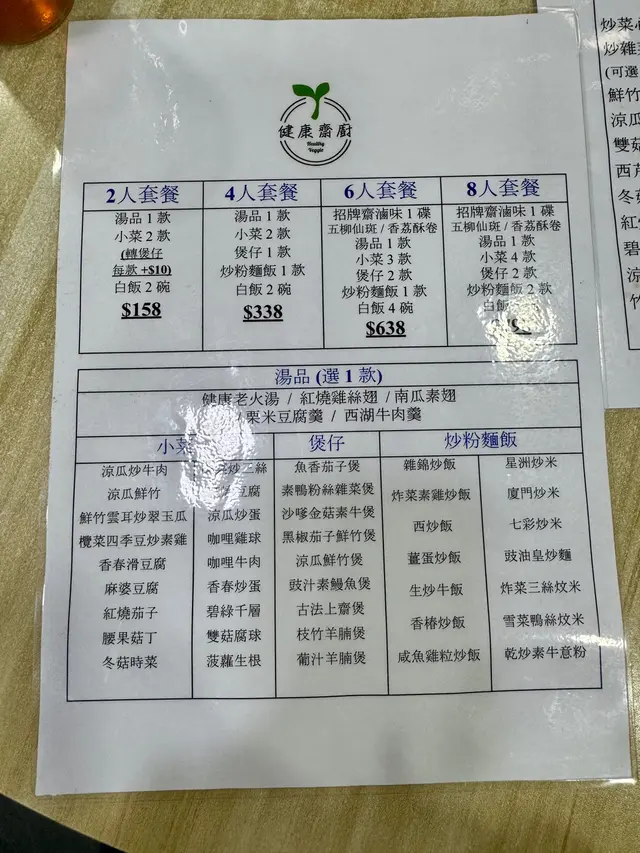 健康齋廚
Healthy
Veggie
2人套餐
湯品 1 款
小菜 2 款
(轉煲仔
每款 +$10)
白飯 2 碗
$158
4人套餐
湯品 1 款
小菜 2 款
煲仔 1 款
炒粉麵飯 1 款
白飯 2 碗
$338
6人套餐
招牌齋滷味 1 碟
五柳仙斑 / 香荔酥卷
湯品 1 款
小菜 3 款
煲仔 2 款
炒粉麵飯 1 款
白飯 4 碗
$638
8人套餐
招牌齋滷味 1 碟
五柳仙斑 / 香荔酥卷
湯品 1 款
小菜 4 款
煲仔 2 款
炒粉麵飯 2 款
白飯
湯品 (選 1 款)
健康老火湯 / 紅燒雞絲翅 / 南瓜素翅
/ 栗米豆腐羹 / 西湖牛肉羹
小菜
涼瓜炒牛肉
涼瓜鮮竹
鮮竹雲耳炒翠玉瓜
欖菜四季豆炒素雞
香春滑豆腐
麻婆豆腐
紅燒茄子
腰果菇丁
冬菇時菜
炒三絲
豆腐
涼瓜炒蛋
咖哩雞球
咖哩牛肉
香春炒蛋
碧綠千層
雙菇腐球
菠蘿生根
煲仔
魚香茄子煲
素鴨粉絲雜菜煲
沙嗲金菇素牛煲
黑椒茄子鮮竹煲
涼瓜鮮竹煲
豉汁素鰻魚煲
古法上齋煲
枝竹羊腩煲
葡汁羊腩煲
炒粉麵飯
雜錦炒飯
炸菜素雞炒飯
西炒飯
薑蛋炒飯
生炒牛飯
香椿炒飯
咸魚雞粒炒飯
星洲炒米
廈門炒米
七彩炒米
豉油皇炒麵
炸菜三絲炆米
雪菜鴨絲炆米
乾炒素牛意粉
炒菜
炒雜
(可選
鮮竹
涼瓜
雙菇
西芹
冬菇
紅
碧
涼
竹